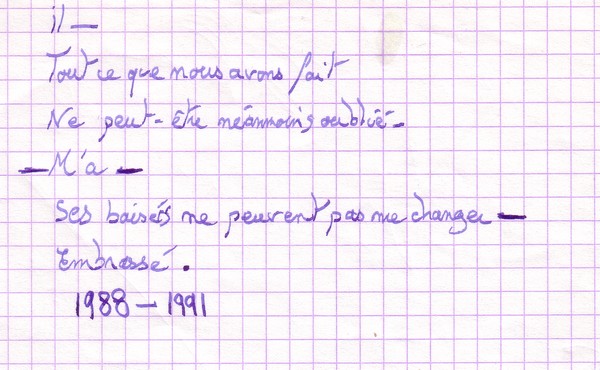 il —
Tout ce que nous avons fait
Ne peut-être néanmoins oublié —
— M'a —
Ses baisers me peuvent pas me changer —
Embrassé.
1988 – 1991